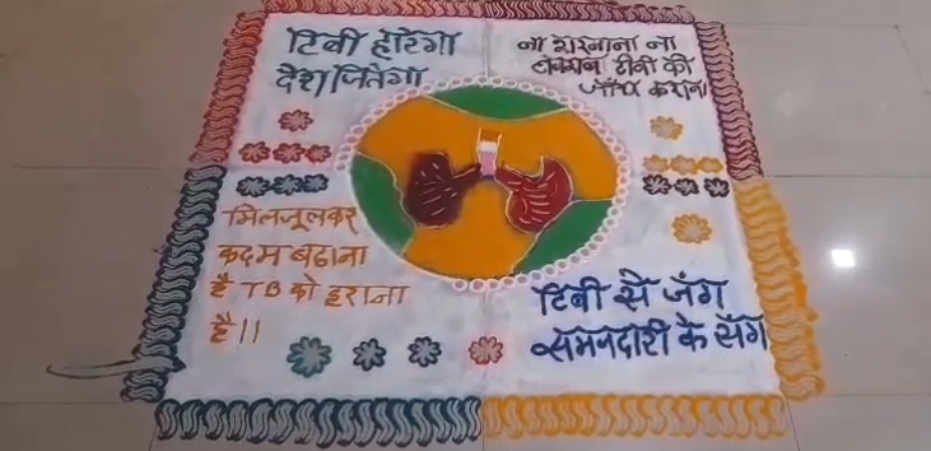 टिबी हारेगा
देश जितेगा
ना शरमाना ना
टीबी की
जाँच कराना
मिलजूलकर
कदम बढाना
है TB को हराना
है।।
टिबी से जंग
समजदारी के संग